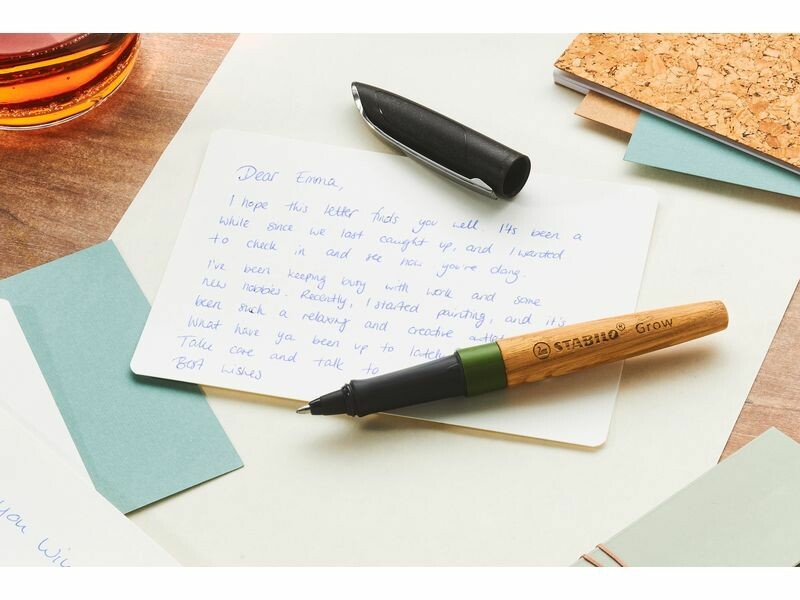 Dear Emma,
I hope this letter finds you well. It's been a
while since we last caught up, and I wanted
to check in and see how you're doing.
I've been keeping busy with work and some
new hobbies. Recently, I started painting, and it's
been such a relaxing and creative
What have you been up to
Take care and talk to
Best wishes
STABILO® Grow
you